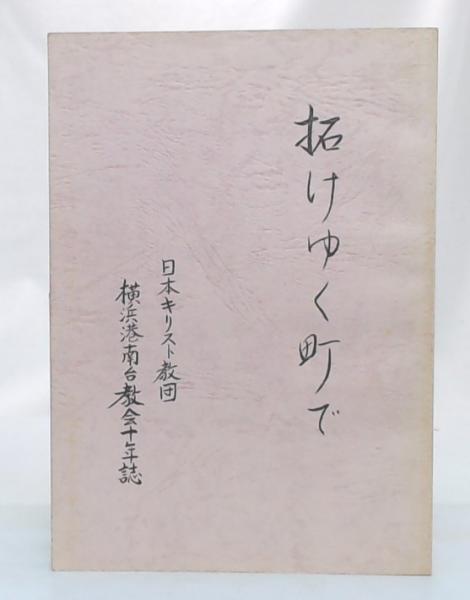 拓けゆく町で
日本キリスト教団
横浜港南台教会十年誌